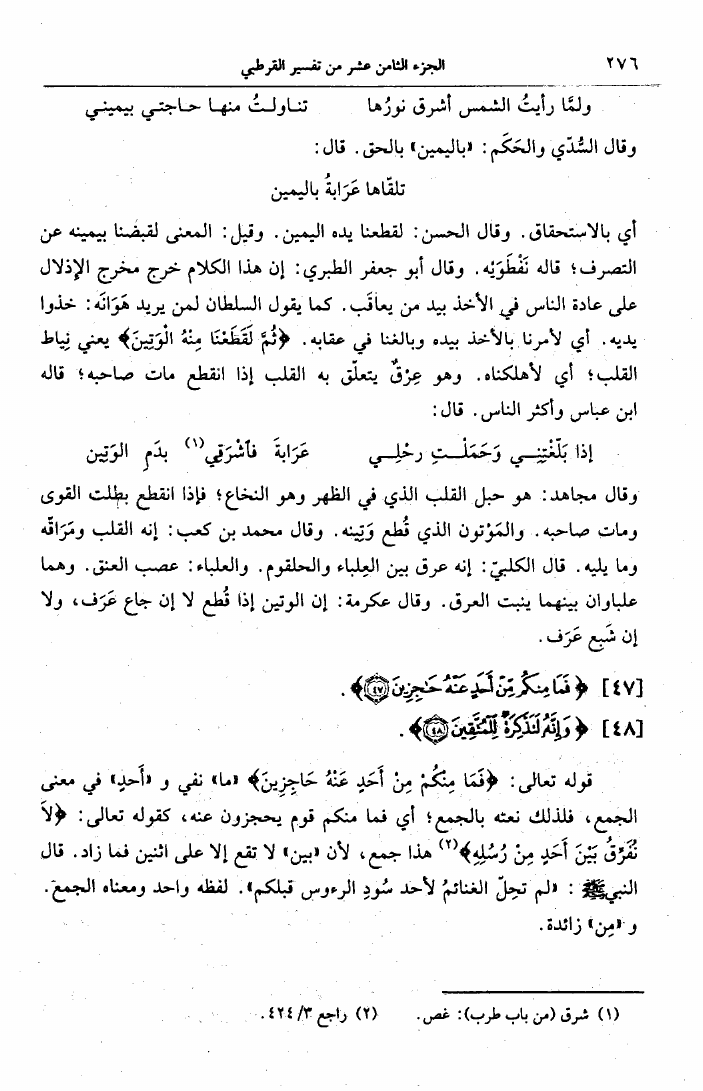 ٢٧٦ الجزء الثامن عشر من تفسير القرطبي
ولمَّا رأيتُ الشمس أشرق نورُها تناولتُ منها حاجتي بيميني
وقال السُّدّي والحَكَم: «باليمين» بالحق. قال:
تلقّاها عَرَابةُ باليمين
أي بالاستحقاق. وقال الحسن: لقطعنا يده اليمين. وقيل: المعنى لقبضنا بيمينه عن
التصرف؛ قاله نَفْطَوَيْه. وقال أبو جعفر الطبري: إن هذا الكلام خرج مخرج الإذلال
على عادة الناس في الأخذ بيد من يعاقَب. كما يقول السلطان لمن يريد هَوَانَه: خذوا
يديه. أي لأمرنا بالأخذ بيده وبالغنا في عقابه. ﴿ثُمَّ لَقَطَعْنَا مِنْهُ الْوَتِينَ﴾ يعني نِياط
القلب؛ أي لأهلكناه. وهو عِرْقٌ يتعلّق به القلب إذا انقطع مات صاحبه؛ قاله
ابن عباس وأكثر الناس. قال:
إذا بَلَّغْتِنِي وَحَمَلْتِ رحْلِي عَرَابةَ فاَشْرَقِي(١) بدَمِ الوَتِين
وقال مجاهد: هو حبل القلب الذي في الظهر وهو النخاع؛ فإذا انقطع بطلت القوى
ومات صاحبه. والمَوْتون الذي قُطع وَتِينه. وقال محمد بن كعب: إنه القلب ومَرَاقّه
وما يليه. قال الكلبيّ: إنه عرق بين العِلباء والحلقوم. والعلباء: عصب العنق. وهما
علباوان بينهما ينبت العرق. وقال عكرمة: إن الوتين إذا قُطع لا إن جاع عَرَف، ولا
إن شَبِع عَرَف.
[٤٧] ﴿فَمَا مِنكُم مِّنْ أَحَدٍ عَنْهُ حَاجِزِينَ ﴿٤٧﴾﴾.
[٤٨] ﴿وَإِنَّهُ لَتَذْكِرَةٌ لِّلْمُتَّقِينَ ﴿٤٨﴾﴾.
قوله تعالى: ﴿فَمَا مِنْكُمْ مِنْ أَحَدٍ عَنْهُ حَاجِزِينَ﴾ «ما» نفي و «أحدٍ» في معنى
الجمع، فلذلك نعته بالجمع؛ أي فما منكم قوم يحجزون عنه، كقوله تعالى: ﴿لاَ
نُفَرِّقُ بَيْنَ أَحَدٍ مِنْ رُسُلِهِ﴾(٢) هذا جمع، لأن «بين» لا تقع إلا على اثنين فما زاد. قال
النبي ﷺ: «لم تحِلّ الغنائمُ لأحد سُودِ الرءوس قبلكم». لفظه واحد ومعناه الجمع.
و «مِن» زائدة.
(١) شرق (من باب طرب): غص. (٢) راجع ٣/٤٢٤.